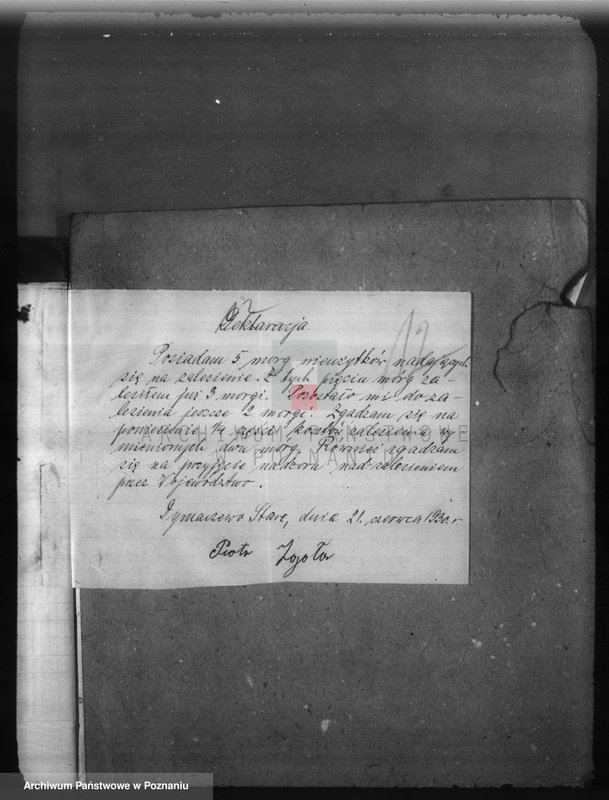 Deklaracja.
12
Posiadam 5 morg nieużytków nadających
się na zalesienie. Z tych pięciu morg za-
lesiłem już 3 morgi. Pozostało mi do za-
lesienia jeszcze 2 morgi. Zgadzam się na
poniesienie 1/4 części kosztów zalesienia wy
mienionych dwu morg. Również zgadzam
się na przyjęcie nadzoru nad zalesieniem
przez Województwo.
Dymaczewo Stare, dnia 21. czerwca 1930. r
Piotr
ARCHIWUM PAŃSTWOWE
W POZNANIU
Archiwum Państwowe w Poznaniu